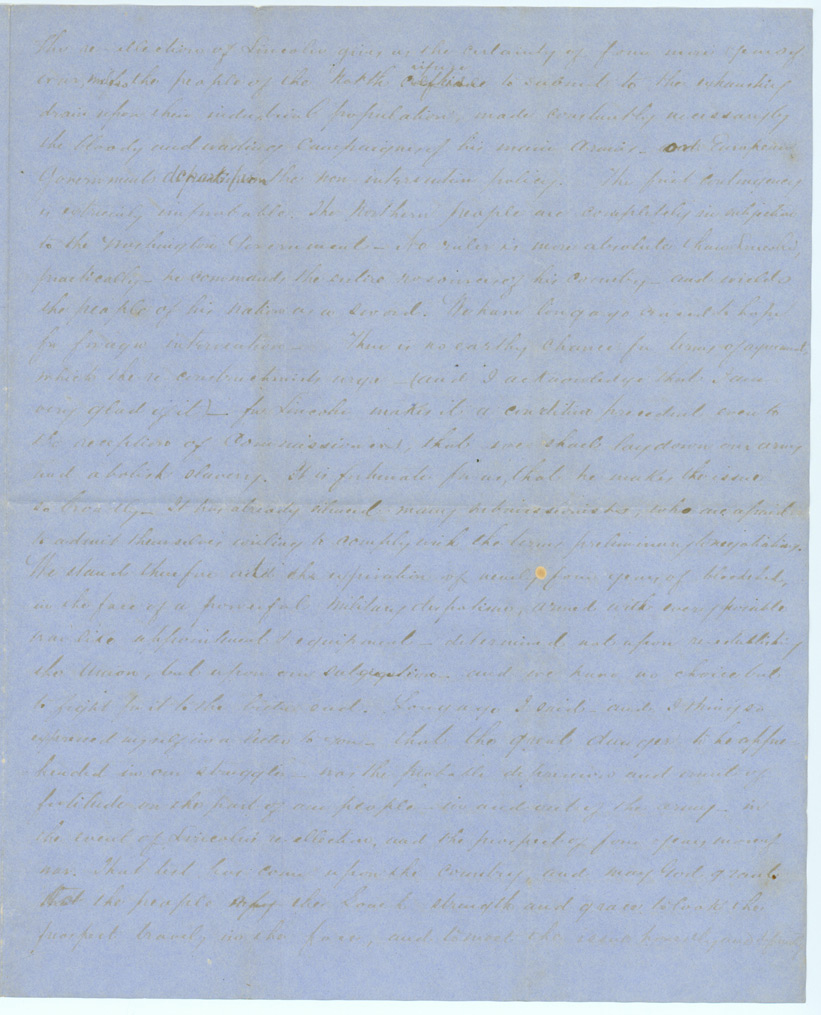 The re-election of Lincoln gives us the certainty of four more years of
war, unless the people of the North refuse to submit to the exhausting
drain upon their industrial population, made constantly necessary by
the bloody and wasting Campaigns of his main Armies - or European
Governments depart from the non-intervention policy. The first contingency
is extremely improbable. The Northern people are completely in subjection
to the Washington Government - No ruler is more absolute than Lincoln,
practically - he commands the entire resources of his country - and wields
the people of his nation as a sword. We have long ago ceased to hope
for foreign intervention - There is no earthly chance for terms of agreement,
which the reconstructionists urge - (and I acknowledge that I am
very glad of it) - for Lincoln makes it a condition precedent even to
the reception of Commissioners, that we shall lay down our arms
and abolish slavery. It is fortunate for us, that he makes the issue
so broadly - It has already silenced many submissionists, who are afraid
to admit themselves willing to comply with the terms preliminary to negotiation.
We stand therefore at the expiration of nearly four years of bloodshed,
in the face of a powerful military despotism, armed with every possible
appointment & equipment - determined not upon re-establishing
the Union, but upon our subjugation - and we have no choice but
to fight it to the bitter end. Long ago I said - and I think so
expressed myself in a letter to you - that the great danger to be appre-
hended in our struggle - was the probable depression and want of
fortitude on the part of our people - in and out of the army - in
the event of Lincoln's re-election, and the prospect of four years more of
war. That test has come upon the country, and may God grant
that the people of the South strength and grace to look the
prospect bravely in the face, and to meet the issue